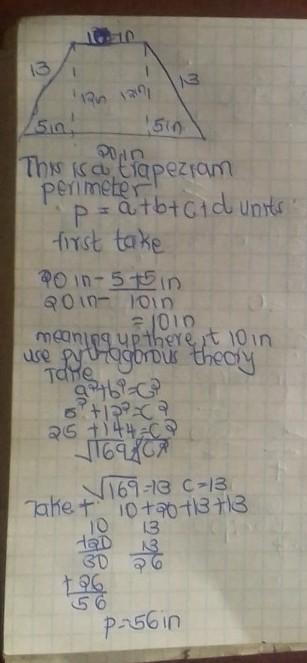 10 in
13
13
12in
12in
5in
5in
20in
This is a trapeziam
perimeter
p = a+b+c+d units
first take
20in - 5+5in
20in - 10in
= 10in
meaning up there it 10in
use pythagorous theory
Take
a²+b²=c²
5²+12²=c²
25 +144=c²
√169=√c²
√169=13 c=13
Take + 10+20+13+13
10 13
+20 13
30 26
+26
56
p=56in